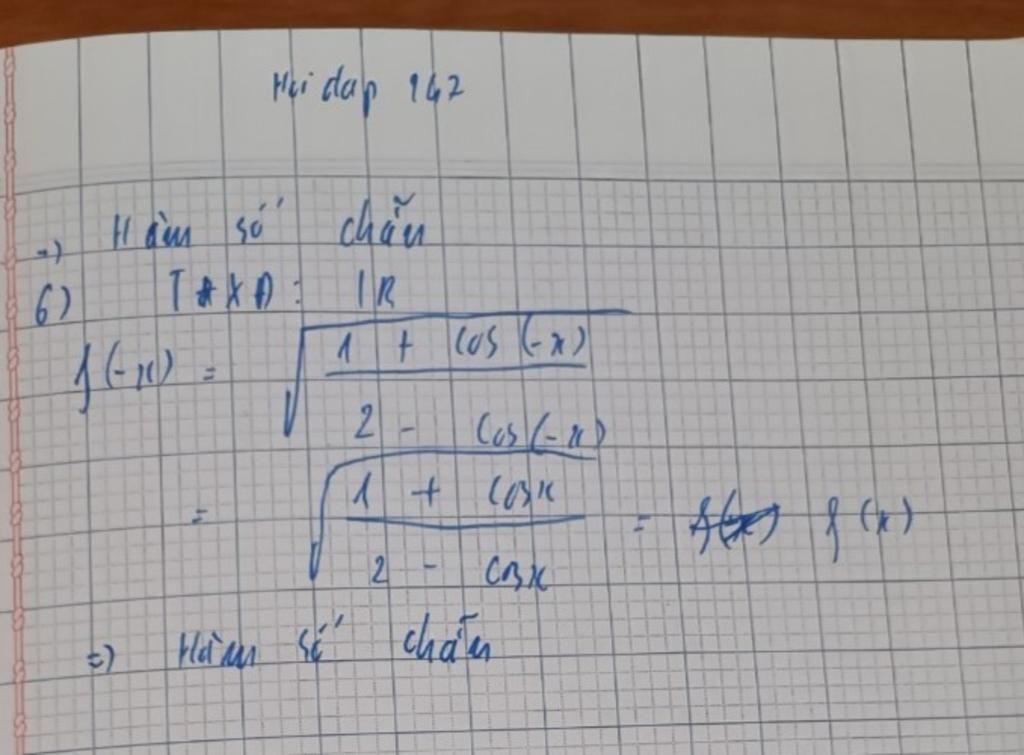 Hỏi đáp 247
=> Hàm số chẵn
6) TXĐ: IR
f(-x) = √((1 + cos(-x))/(2 - cos(-x)))
= √((1 + cosx)/(2 - cosx)) = f(x)
=> Hàm số chẵn